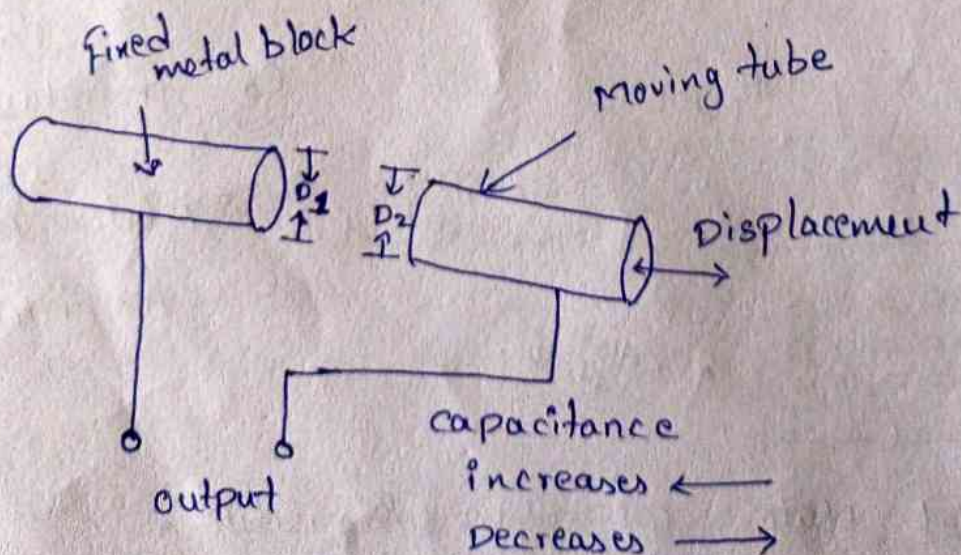 Fixed
metal block
Moving tube
D1
D2
Displacement
capacitance
increases ←
Decreases →
output